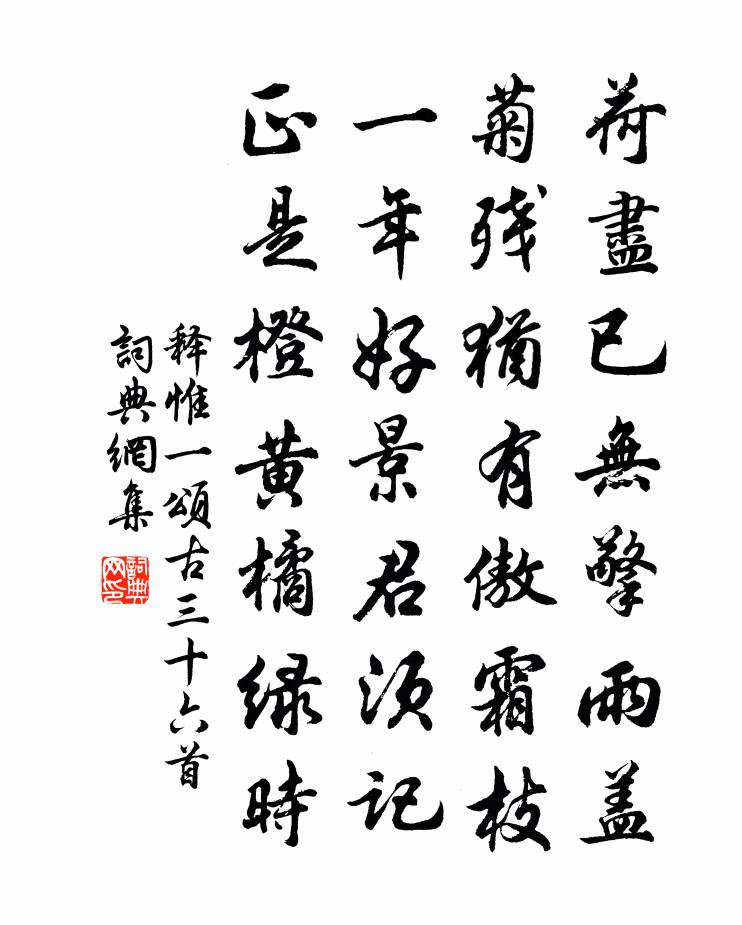 荷盡已無擎雨盖
菊残猶有傲霜枝
一年好景君須记
正是橙黃橘绿時
释惟一頌古三十六首
詞典網集
詞典网印